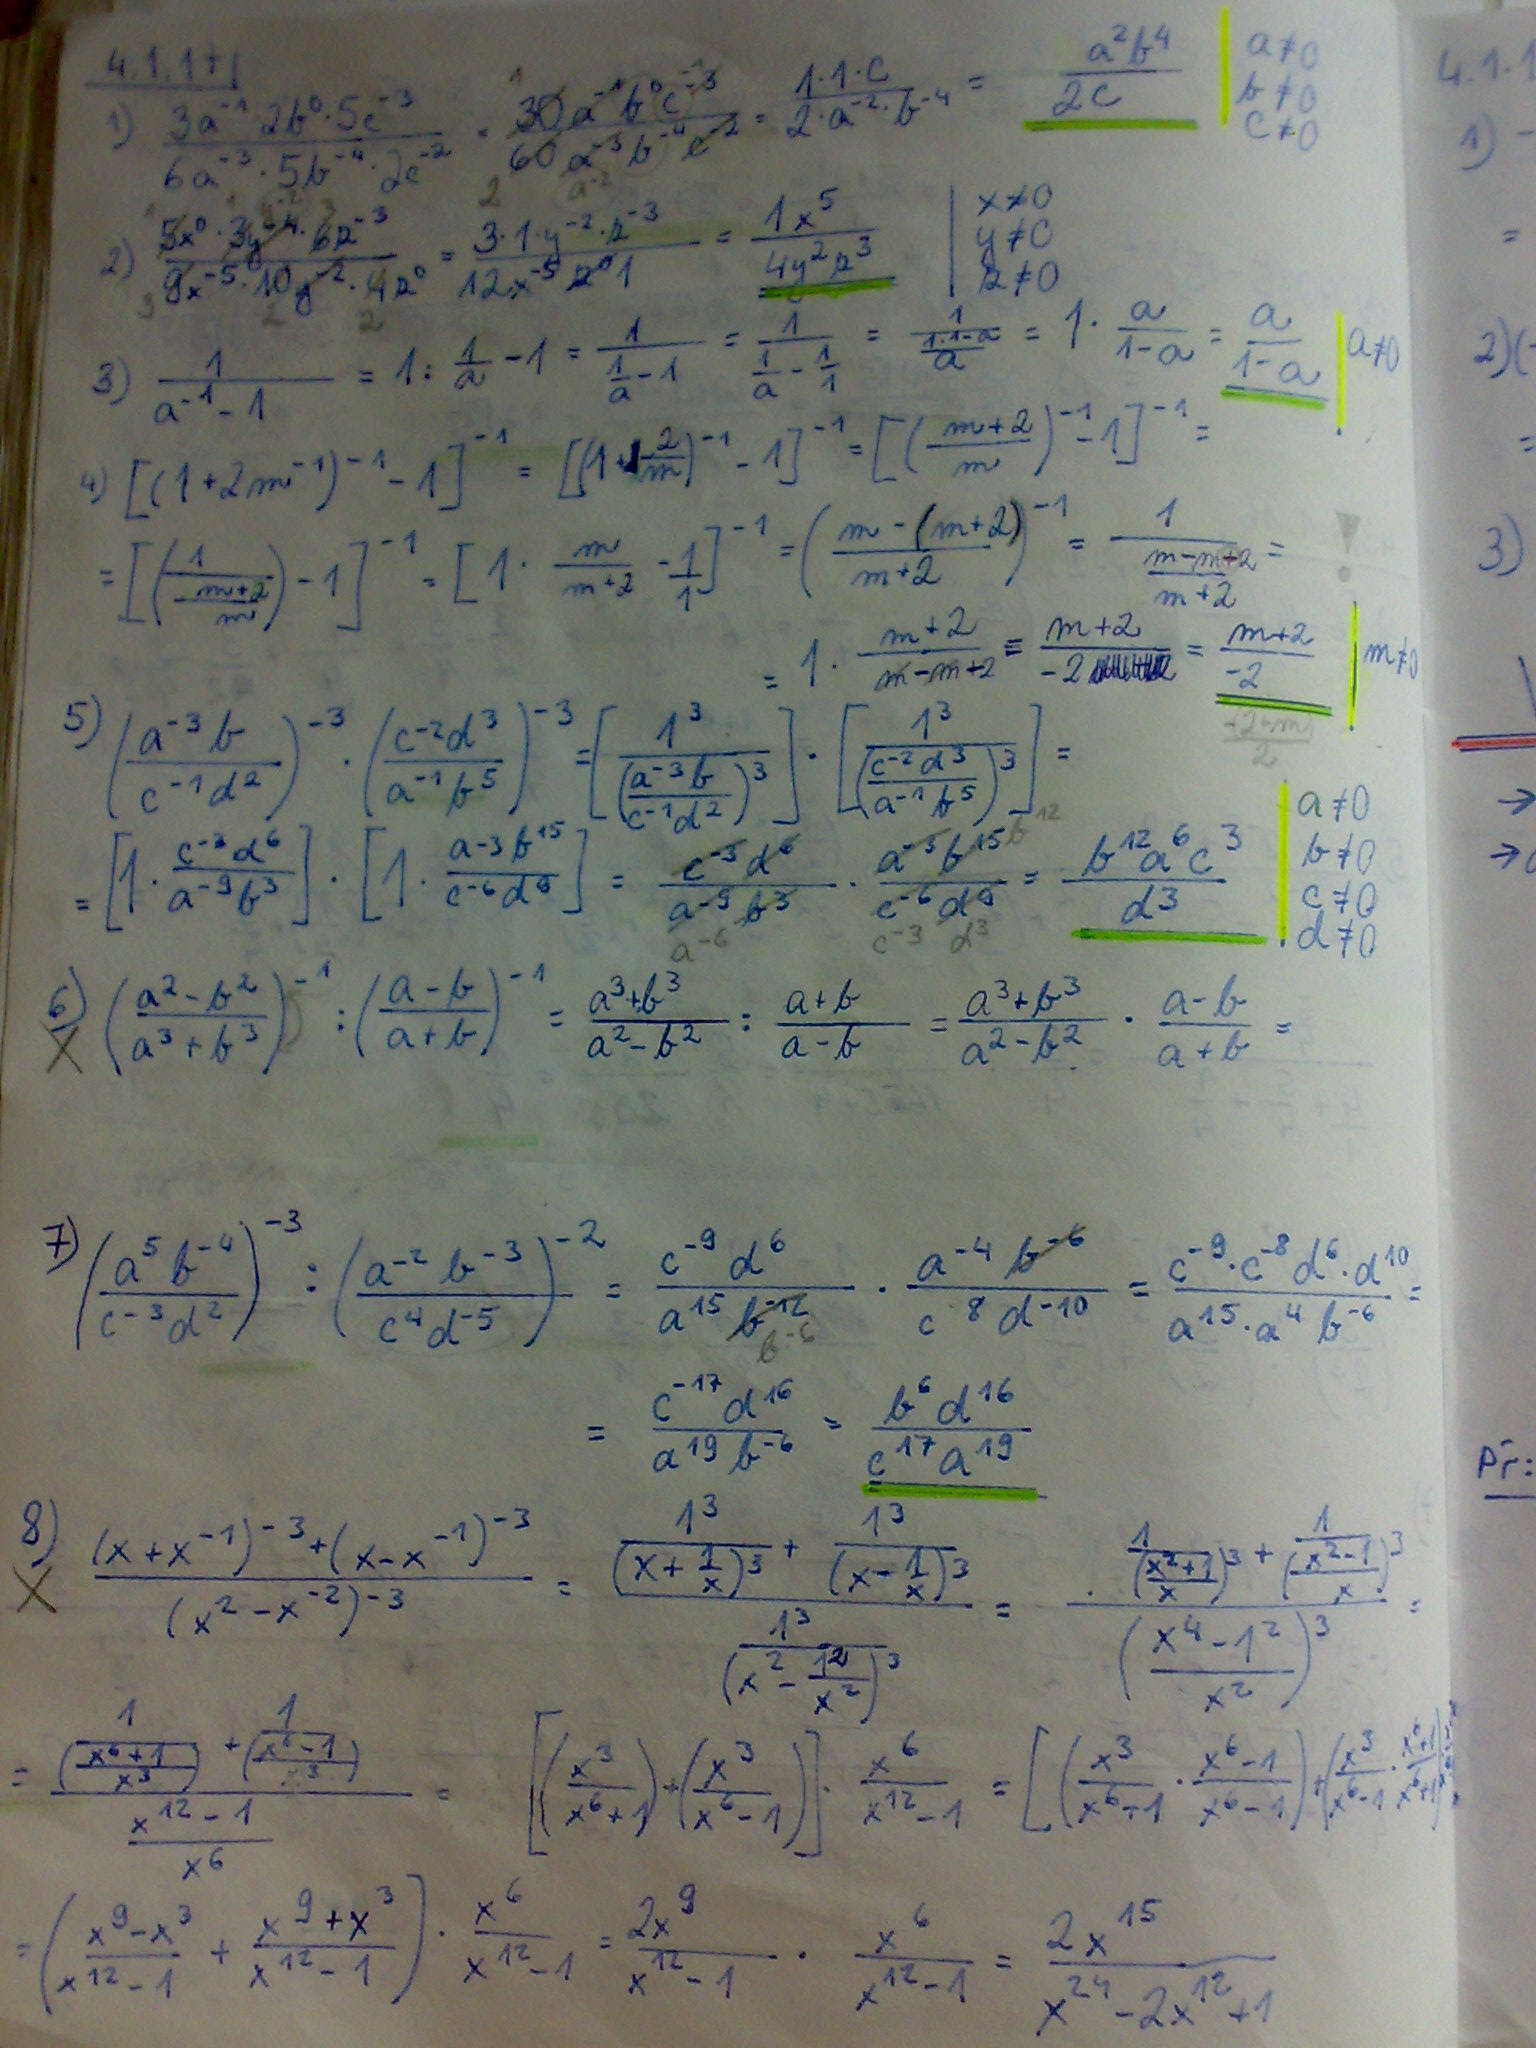 4.1.1+1
1) (3a^-1 · 2b^0 · 5c^-3)/(6a^-3 · 5b^-4 · 2c^-2) = (30a^-1 b^0 c^-3)/(60 a^-3 b^-4 c^-2) = (1·1·c)/(2·a^-2·b^-4) = a^2b^4/2c | a≠0 b≠0 c≠0
2) (5x^0 · 3y^-4 · 6z^-3)/(9x^-5 · 10y^-2 · 4z^0) = (3·1·y^-2·z^-3)/(12x^-5 z^0 1) = 1x^5/4y^2z^3 | x≠0 y≠0 z≠0
3) 1/(a^-1 - 1) = 1 : 1/a - 1 = 1/(1/a - 1) = 1/(1/a - 1/1) = 1/((1·1-a)/a) = 1 · a/(1-a) = a/(1-a) | a≠0
4) [(1+2m^-1)^-1 - 1]^-1 = [(1+2/m)^-1 - 1]^-1 = [((m+2)/m)^-1 - 1]^-1 =
= [(1/((m+2)/m)) - 1]^-1 = [1 · m/(m+2) - 1/1]^-1 = ((m-(m+2))/(m+2))^-1 = 1/((m-m+2)/(m+2)) = !
= 1 · (m+2)/(m-m+2) = (m+2)/-2 = (m+2)/-2 | m≠0
-(2+m)/2
5) (a^-3b/c^-1d^2)^-3 · (c^-2d^3/a^-1b^5)^-3 = [1^3/(a^-3b/c^-1d^2)^3] · [1^3/(c^-2d^3/a^-1b^5)^3] =
= [1 · c^-3d^6/a^-9b^3] · [1 · a^-3b^15/c^-6d^9] = c^-3d^6/a^-9b^3 · a^-3b^15/c^-6d^9 = b^12a^6c^3/d^3 | a≠0 b≠0 c≠0 d≠0
6) ((a^2-b^2)/(a^3+b^3))^-1 : ((a-b)/(a+b))^-1 = (a^3+b^3)/(a^2-b^2) : (a+b)/(a-b) = (a^3+b^3)/(a^2-b^2) · (a-b)/(a+b) =
X
7) (a^5b^-4/c^-3d^2)^-3 : (a^-2b^-3/c^4d^-5)^-2 = c^-9d^6/a^15b^-12 · a^-4b^-6/c^8d^-10 = c^-9·c^-8d^6·d^10/a^15·a^4b^-6 =
= c^-17d^16/a^19b^-6 = b^6d^16/c^17a^19
8) ((x+x^-1)^-3+(x-x^-1)^-3)/(x^2-x^-2)^-3 = (1^3/(x+1/x)^3 + 1^3/(x-1/x)^3)/(1^3/(x^2-1^2/x^2)^3) = (1/((x^2+1)/x)^3 + 1/((x^2-1)/x)^3)/((x^4-1^2)/x^2)^3 =
X
= (1/((x^6+1)/x^3) + 1/((x^6-1)/x^3))/((x^12-1)/x^6) = [(x^3/(x^6+1)) + (x^3/(x^6-1))] · x^6/(x^12-1) = [(x^3/(x^6+1) · (x^6-1)/(x^6-1)) + (x^3/(x^6-1) · (x^6+1)/(x^6+1))
= ((x^9-x^3)/(x^12-1) + (x^9+x^3)/(x^12-1)) · x^6/(x^12-1) = 2x^9/(x^12-1) · x^6/(x^12-1) = 2x^15/(x^24-2x^12+1)
4.1.1
1)
=
2)(
=
3)
→
→
Př: